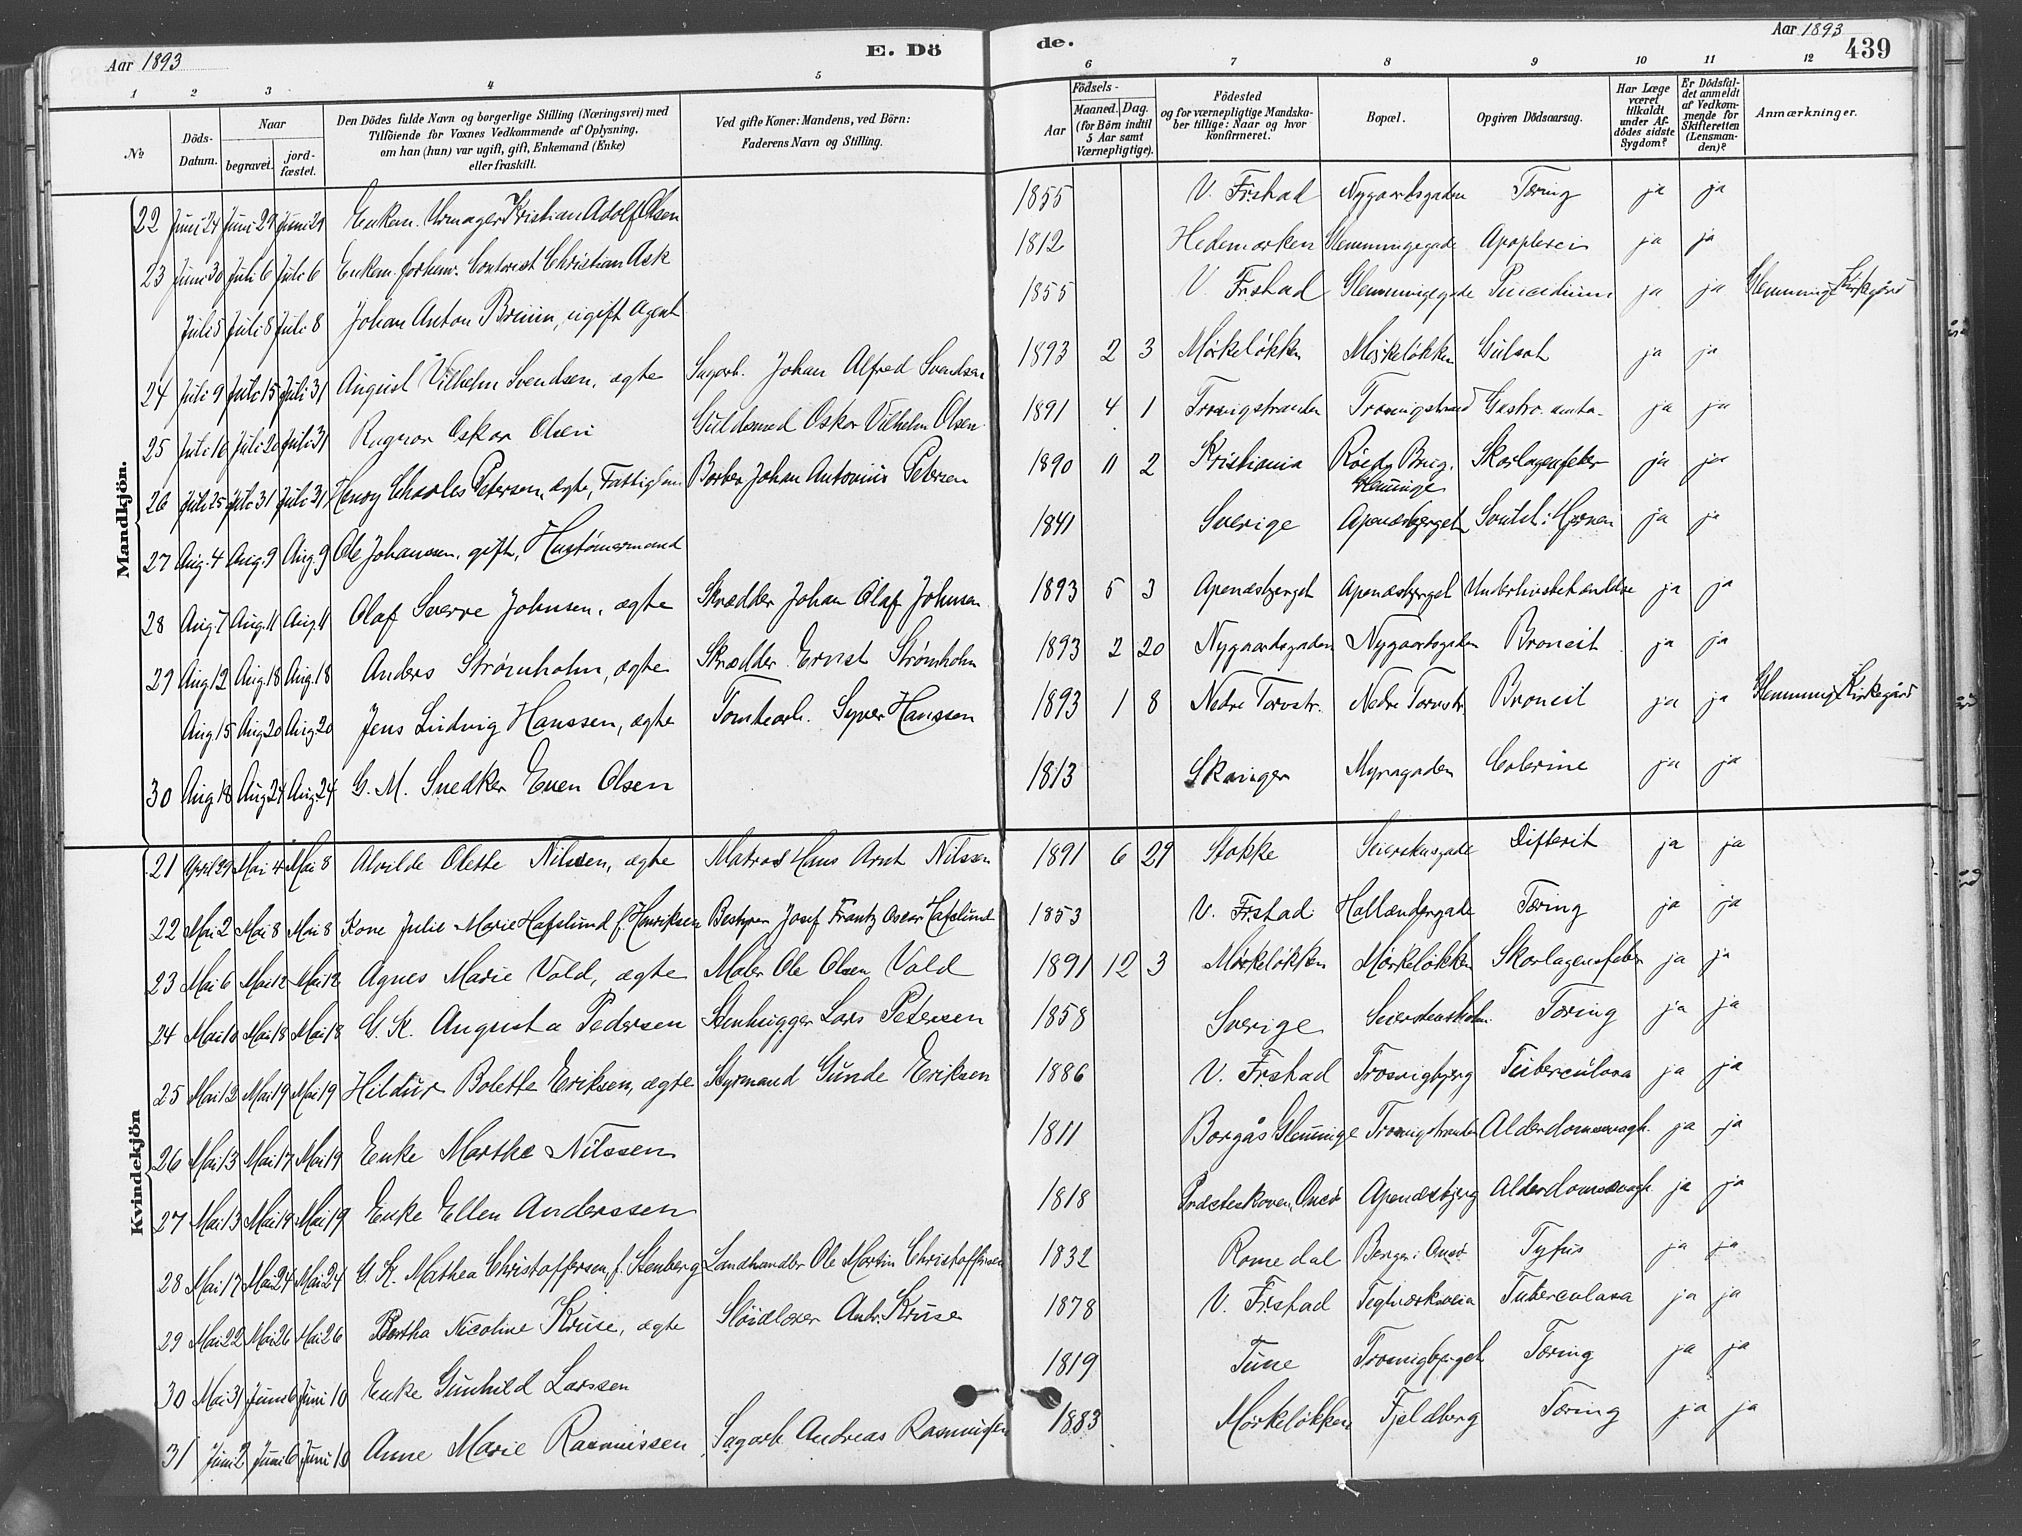 Aar 1893
E. Dö
de.
Aar 1893
439
1 2 3 4 5 6 7 8 9 10 11 12
No
Döds-Datum.
Naar
begravet.
jord-fæstet.
Den Dödes fulde Navn og borgerlige Stilling (Næringsvei) med
Tilföiende for Voxnes Vedkommende af Oplysning,
om han (hun) var ugift, gift, Enkemand (Enke)
eller fraskilt.
Ved gifte Koner: Mandens, ved Börn:
Faderens Navn og Stilling.
Födsels-
Aar
Maaned. Dag.
(for Börn indtil
5 Aar samt
Værnepligtige).
Födested
og for værnepligtige Mandska-
ber tillige: Naar og hvor
konfirmeret.
Bopæl.
Opgiven Dödsaarsag.
Har Læge
været
tilkaldt
under Af-
dödes sidste
Sygdom?
Er Dödsfal-
det anmeldt
af Vedkom-
mende for
Skifteretten
(Lensman-
den)?
Anmærkninger.
Mandkjön.
22 Juni 24 Juni 29 Juni 29 Enkem. Urmager Kristian Adolf Olsen 1855 V. Frstad Nygaardsgaden Tæring ja ja
23 Juni 30 Juli 6 Juli 6 Enkem. forhenv. Contorist Christian Ask 1812 Hedemarken Glemmingegade Apoplexi ja ja
Juli 5 Juli 8 Juli 8 Johan Anton Bruun, ugift Agent 1855 V. Frstad Glemmingegade ja ja Glemminge Kirkegård
24 Juli 9 Juli 15 Juli 31 August Vilhelm Svendsen, ægte Sagarb. Johan Alfred Svendsen 1893 2 3 Mørkeløkken Mørkeløkken Gulsot ja ja
25 Juli 16 Juli 20 Juli 31 Ragnar Oskar Olsen Guldsmed Oskar Vilhelm Olsen 1891 4 1 Trosvigstranden Trosvigstrand ja ja
26 Juli 25 Juli 31 Juli 31 Henry Charles Petersen, ægte, Fattiglem Barber Johan Antonius Petersen 1890 11 2 Kristiania Røeds Brug, Glemminge Skarlagensfeber ja ja
27 Aug. 4 Aug. 9 Aug. 9 Ole Johanssen, gift, Hustømermand 1841 Sverige Apenæsbjerget Svulst i Hjernen ja ja
28 Aug. 7 Aug. 11 Aug. 11 Olaf Sverre Johnsen, ægte Skrædder Johan Olaf Johnsen 1893 5 3 Apenæsbjerget Apenæsbjerget Underlivsbetændelse ja ja
29 Aug. 12 Aug. 18 Aug. 18 Anders Strømholm, ægte Skrædder Ernst Strømholm 1893 2 20 Nygaardsgaden Nygaardsgaden Broncit ja ja
Aug. 15 Aug. 20 Aug. 20 Jens Ludvig Hanssen, ægte Tomtearb. Syver Hanssen 1893 1 8 Nedre Torvstr. Nedre Torvstr. Broncit ja ja Glemminge Kirkegård
30 Aug. 18 Aug. 24 Aug. 24 G. M. Snedker Even Olsen 1813 Skauger Myragaden Colerine ja ja
Kvindekjön
21 April 29 Mai 4 Mai 8 Alvilde Olette Nilssen, ægte Matros Hans Arnt Nilssen 1891 6 29 Stokke Difterit ja ja
22 Mai 2 Mai 8 Mai 8 Kone Julie Marie Hafslund f. Henriksen Bestyrer Josef Frantz Oscar Hafslund 1853 V. Frstad Hollændergade Tæring ja ja
23 Mai 6 Mai 12 Mai 12 Agnes Marie Vold, ægte Maler Ole Olsen Vold 1891 12 3 Mørkeløkken Mørkeløkken Skarlagensfeber ja ja
24 Mai 10 Mai 18 Mai 18 G. K. Augusta Pedersen Stenhugger Lars Petersen 1858 Sverige Tæring ja ja
25 Mai 12 Mai 19 Mai 19 Hildur Bolette Eriksen, ægte Styrmand Gunde Eriksen 1886 V. Frstad Trosvigbjerg Tuberculosa ja ja
26 Mai 13 Mai 17 Mai 19 Enke Marthe Nilssen 1811 Borgås Glemminge Trosvigstranden Alderdomssvagh. ja ja
27 Mai 13 Mai 19 Mai 19 Enke Ellen Anderssen 1818 Præsteskoven, Onsø Apenæsbjerg Alderdomssvagh. ja ja
28 Mai 17 Mai 24 Mai 24 G. K. Mathea Christoffersen, f. Stenberg Landhandler Ole Martin Christoffersen 1832 Romedal Berge i Onsø Tyfus ja ja
29 Mai 22 Mai 26 Mai 26 Bertha Nicoline Kruse, ægte Sløidlærer Andr. Kruse 1878 V. Frstad Teglværksveia Tuberculosa ja ja
30 Mai 31 Juni 6 Juni 10 Enke Gunhild Larssen 1819 Tune Trosvigbjerget Tæring ja ja
31 Juni 2 Juni 6 Juni 10 Anne Marie Rasmussen Sagarb. Andreas Rasmussen 1883 Mørkeløkken Fjeldberg Tæring ja ja